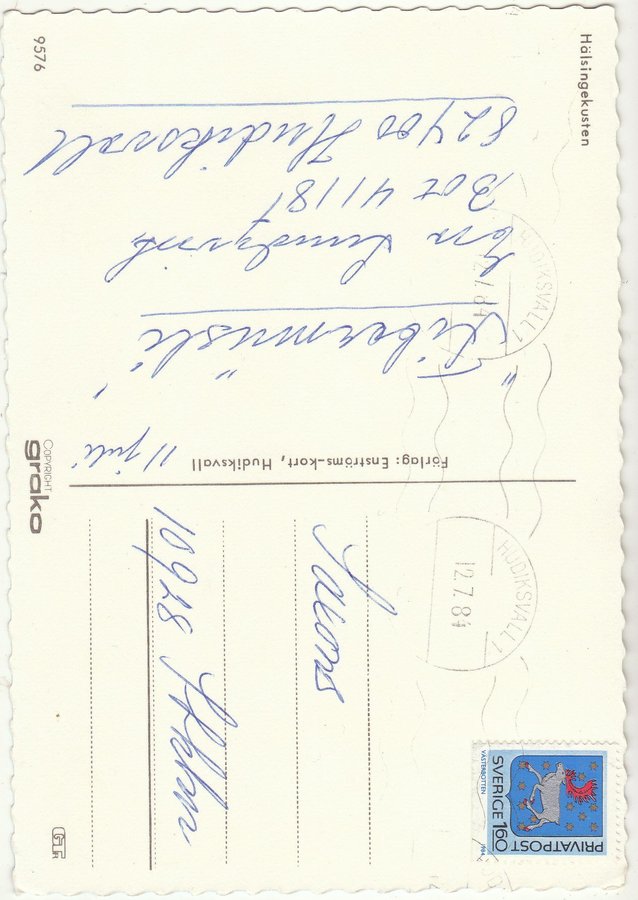 Hälsingekusten
9576
"Fibermüsli"
Lundqvist
Box 4118
82400 Hudiksvall
11 juli
Förlag: Enströms-kort, Hudiksvall
COPYRIGHT
grako
HUDIKSVALL 1
12.7.84
HUDIKSVALL 1
12.7.84
PRIVATPOST
SVERIGE 160
VÄSTERBOTTEN
1984
10928 Sthlm